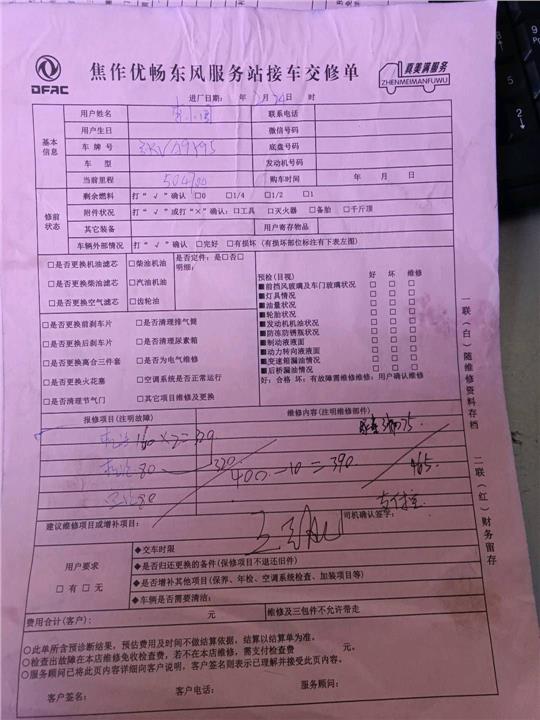 DFAC
焦作优畅东风服务站接车交修单
真美满服务
ZHENMEIMANFUWU
进厂日期： 年 月 24 日 时
基本信息
用户姓名 联系电话
用户生日 微信号码
车 牌 号 底盘号码
车 型 发动机号码
当前里程 购车时间 年 月 日
修前状况
剩余燃料 打“√”确认 □0 □1/4 □1/2 □1
附件状况 打“√”或打“×”确认：□工具 □灭火器 □备胎 □千斤顶
其它装备 用户寄存物品
车辆外部情况 打“√”确认 □完好 □有损坏（有损坏部位标注有下表左图）
□是否更换机油滤芯 □柴油机油 是否定件：是□否□
明细：
□是否更换柴油滤芯 □汽油机油
□是否更换空气滤芯 □齿轮油
□是否更换前刹车片 □是否清理排气筒
□是否更换后刹车片 □是否清理尿素箱
□是否更换离合三件套 □是否为电气维修
□是否更换火花塞 □空调系统是否正常运行
□是否清理节气门 □其它项目维修及更换
预检（目视） 好 坏 维修
■前挡风玻璃及车门玻璃状况 □ □ □
■灯具情况 □ □ □
■油量状况 □ □ □
■轮胎状况 □ □ □
■发动机机油状况 □ □ □
■防冻防锈瓶状况 □ □ □
■制动液液面 □ □ □
■动力转向液液面 □ □ □
■变速箱漏油情况 □ □ □
■后桥漏油情况 □ □ □
好：合格 坏：有故障需维修维修：用户确认维修
报修项目（注明故障） 维修内容（注明维修部件）
160×2=320
80 320
400-10=390
465
30
支付宝
建议维修项目或增补项目： 司机确认签字：
用户要求
□有 □无
◆交车时限
◆是否归还更换的备件（保修项目不退还旧件）
◆是否增补其他项目（保养、年检、空调系统检查、加装项目等）
◆车辆是否需要清洁：
费用合计（客户）： 元 维修及三包件不允许带走
○此单所含预诊断结果，预估费用及时间不做结算依据，结算以结算单为准。
○检查出故障在本店维修免收检查费，若不在本店维修，需支付检查费 元。
○服务顾问已将此页内容详细向客户说明，客户签名则表示已理解并接受此页内容。
客户签名： 客户电话： 服务顾问：
一联（白）随维修资料存档
二联（红）财务留存